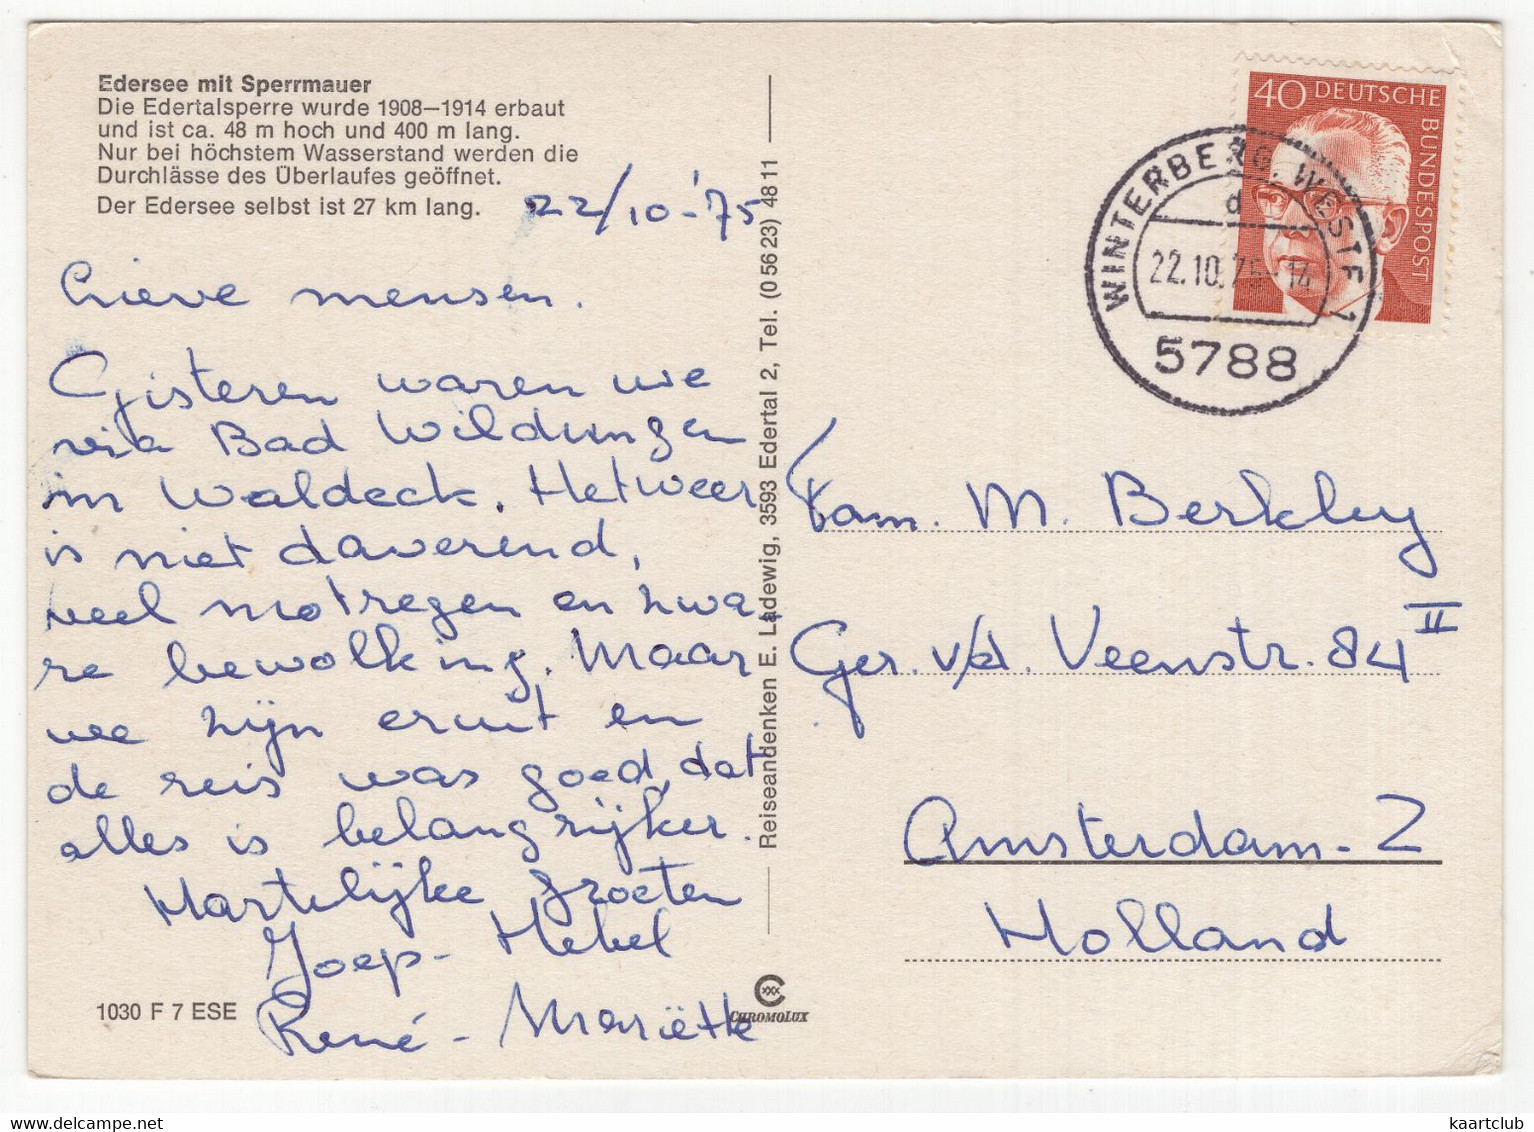 Edersee mit Sperrmauer
Die Edertalsperre wurde 1908–1914 erbaut
und ist ca. 48 m hoch und 400 m lang.
Nur bei höchstem Wasserstand werden die
Durchlässe des Überlaufes geöffnet.
Der Edersee selbst ist 27 km lang.
22/10-'75
Lieve mensen.
Gisteren waren we
via Bad Wildungen
in Waldeck. Het weer
is niet daverend,
veel motregen en zwa
re bewolking. Maar
we zijn eruit en
de reis was goed, dat
alles is belangrijker.
Hartelijke groeten
Joep -
René - Mariëtte
1030 F 7 ESE
Reiseandenken E. Ladewig, 3593 Edertal 2, Tel. (0 56 23) 48 11
CHROMOLUX
40 DEUTSCHE
BUNDESPOST
WINTERBERG, WESTF 1
d
22.10.75-14
5788
Fam. M. Berkley
Ger. v/d. Veenstr. 84 II
Amsterdam-Z
Holland
kaartclub